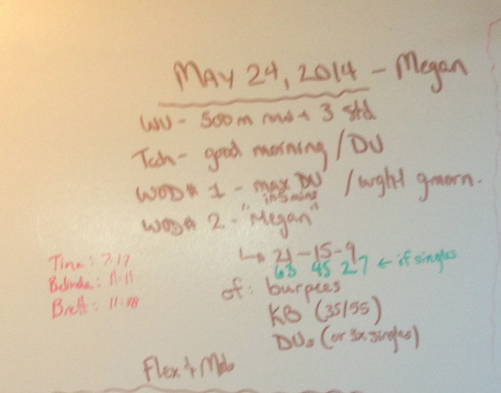 MAY 24, 2014 - Megan
WU - 500m + 3 std
Tech - good morning / DU
WOD# 1 - max DU / wght gmorn.
in 5 mins
WOD# 2 - "Megan"
↳ 21 - 15 - 9
63 45 27 ← if singles
of: burpees
KB (35/55)
DUs (or 3x singles)
Tina: 7:17
Belinda: 11:11
Brett: 11:
Flex + Mob